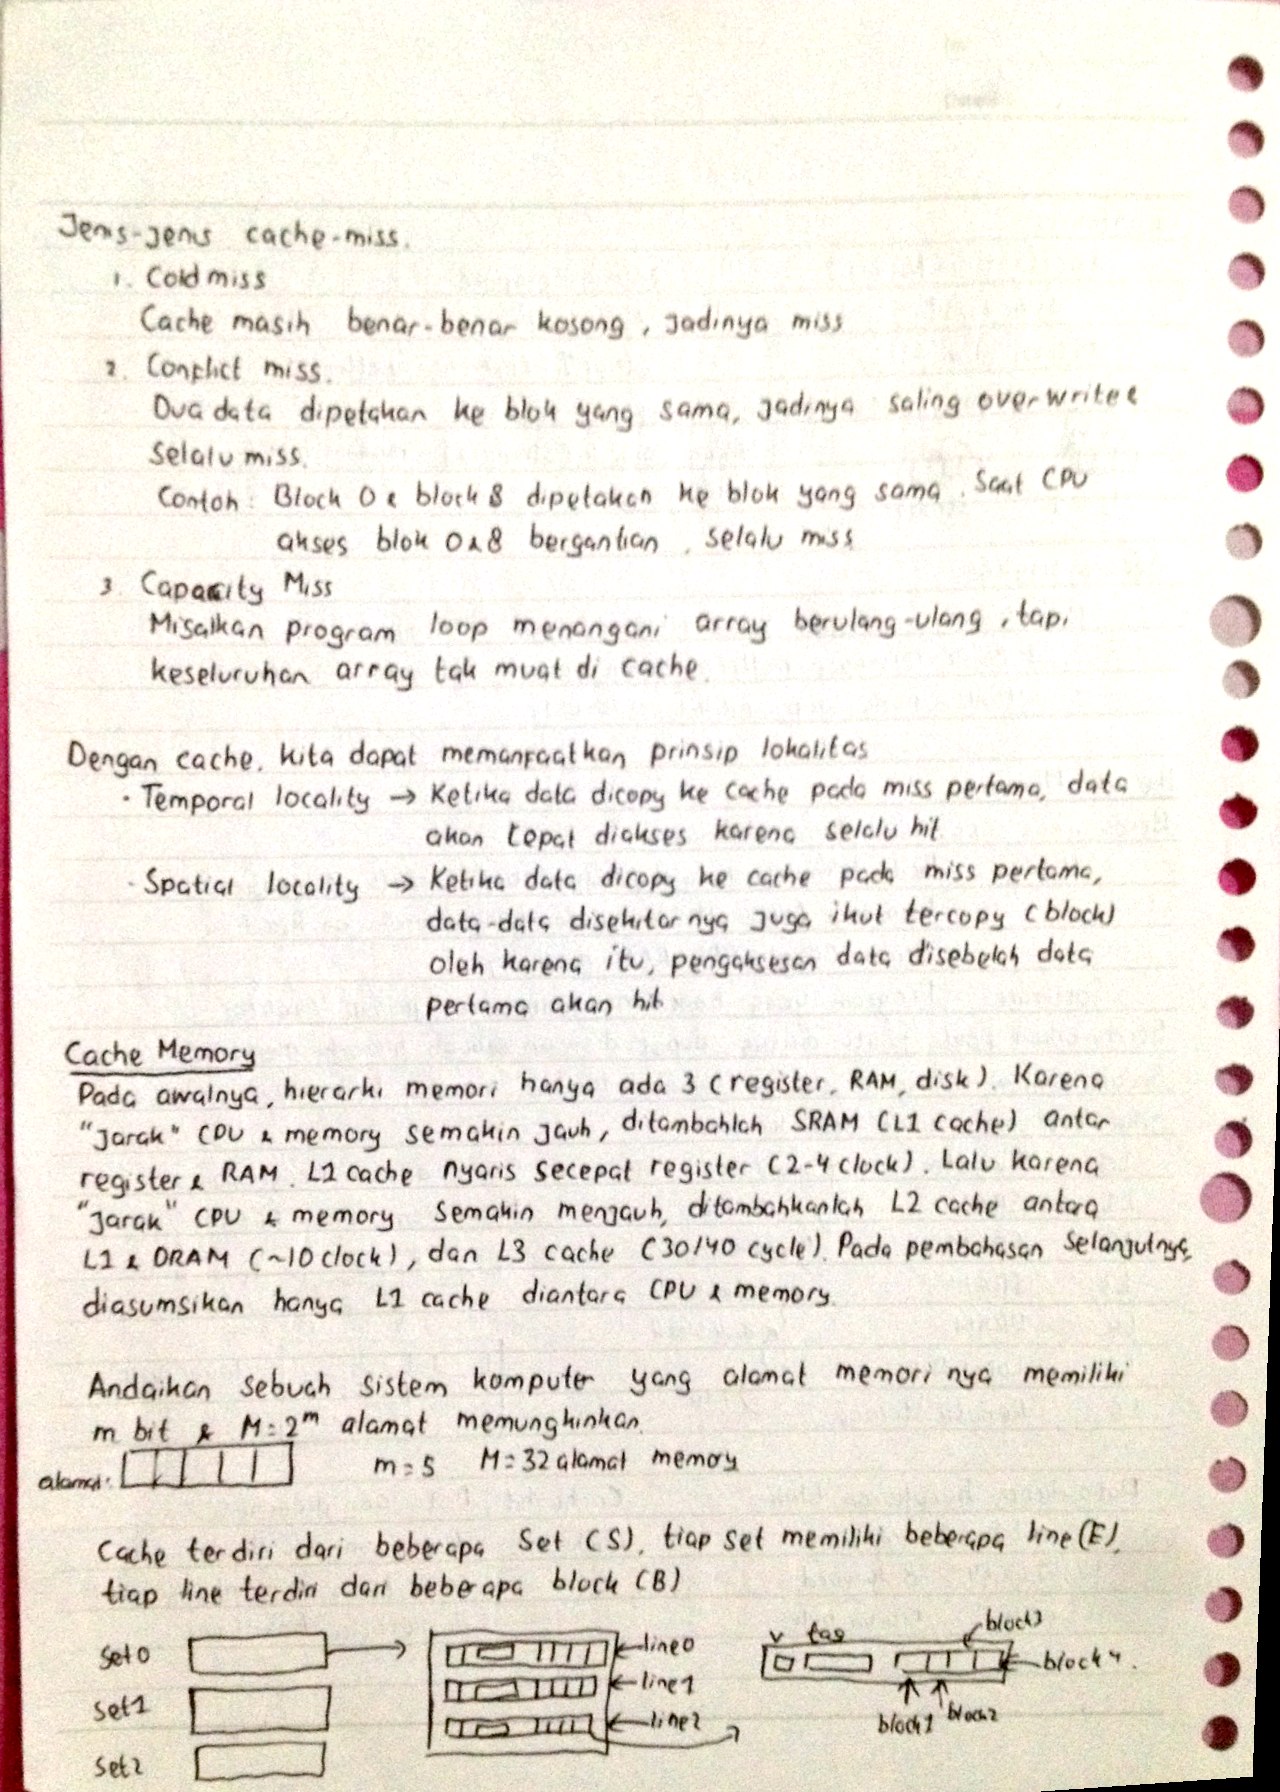 Jenis-jenis cache-miss.
1. Cold miss
Cache masih benar-benar kosong, jadinya miss
2. Conflict miss.
Dua data dipetakan ke blok yang sama, jadinya saling overwrite &
selalu miss.
Contoh: Block 0 & block 8 dipetakan ke blok yang sama. Saat CPU
akses blok 0 & 8 bergantian, selalu miss
3. Capacity Miss
Misalkan program loop menangani array berulang-ulang, tapi
keseluruhan array tak muat di cache.
Dengan cache, kita dapat memanfaatkan prinsip lokalitas
· Temporal locality → Ketika data dicopy ke cache pada miss pertama, data
akan cepat diakses karena selalu hit
· Spatial locality → Ketika data dicopy ke cache pada miss pertama,
data-data disekitarnya juga ikut tercopy (block)
oleh karena itu, pengaksesan data disebelah data
pertama akan hit
Cache Memory
Pada awalnya, hierarki memori hanya ada 3 (register, RAM, disk). Karena
"jarak" CPU & memory semakin jauh, ditambahlah SRAM (L1 cache) antar
register & RAM. L1 cache nyaris secepat register (2-4 clock). Lalu karena
"jarak" CPU & memory semakin menjauh, ditambahkanlah L2 cache antara
L1 & DRAM (~10 clock), dan L3 cache (30/40 cycle). Pada pembahasan selanjutnya,
diasumsikan hanya L1 cache diantara CPU & memory.
Andaikan sebuah sistem komputer yang alamat memorinya memiliki
m bit & M = 2^m alamat memungkinkan.
alamat: m = 5 M = 32 alamat memory
Cache terdiri dari beberapa Set (S), tiap set memiliki beberapa line (E),
tiap line terdiri dari beberapa block (B)
v tag block3
set0 line0 block4.
set1 line1
line2 block1 block2
set2